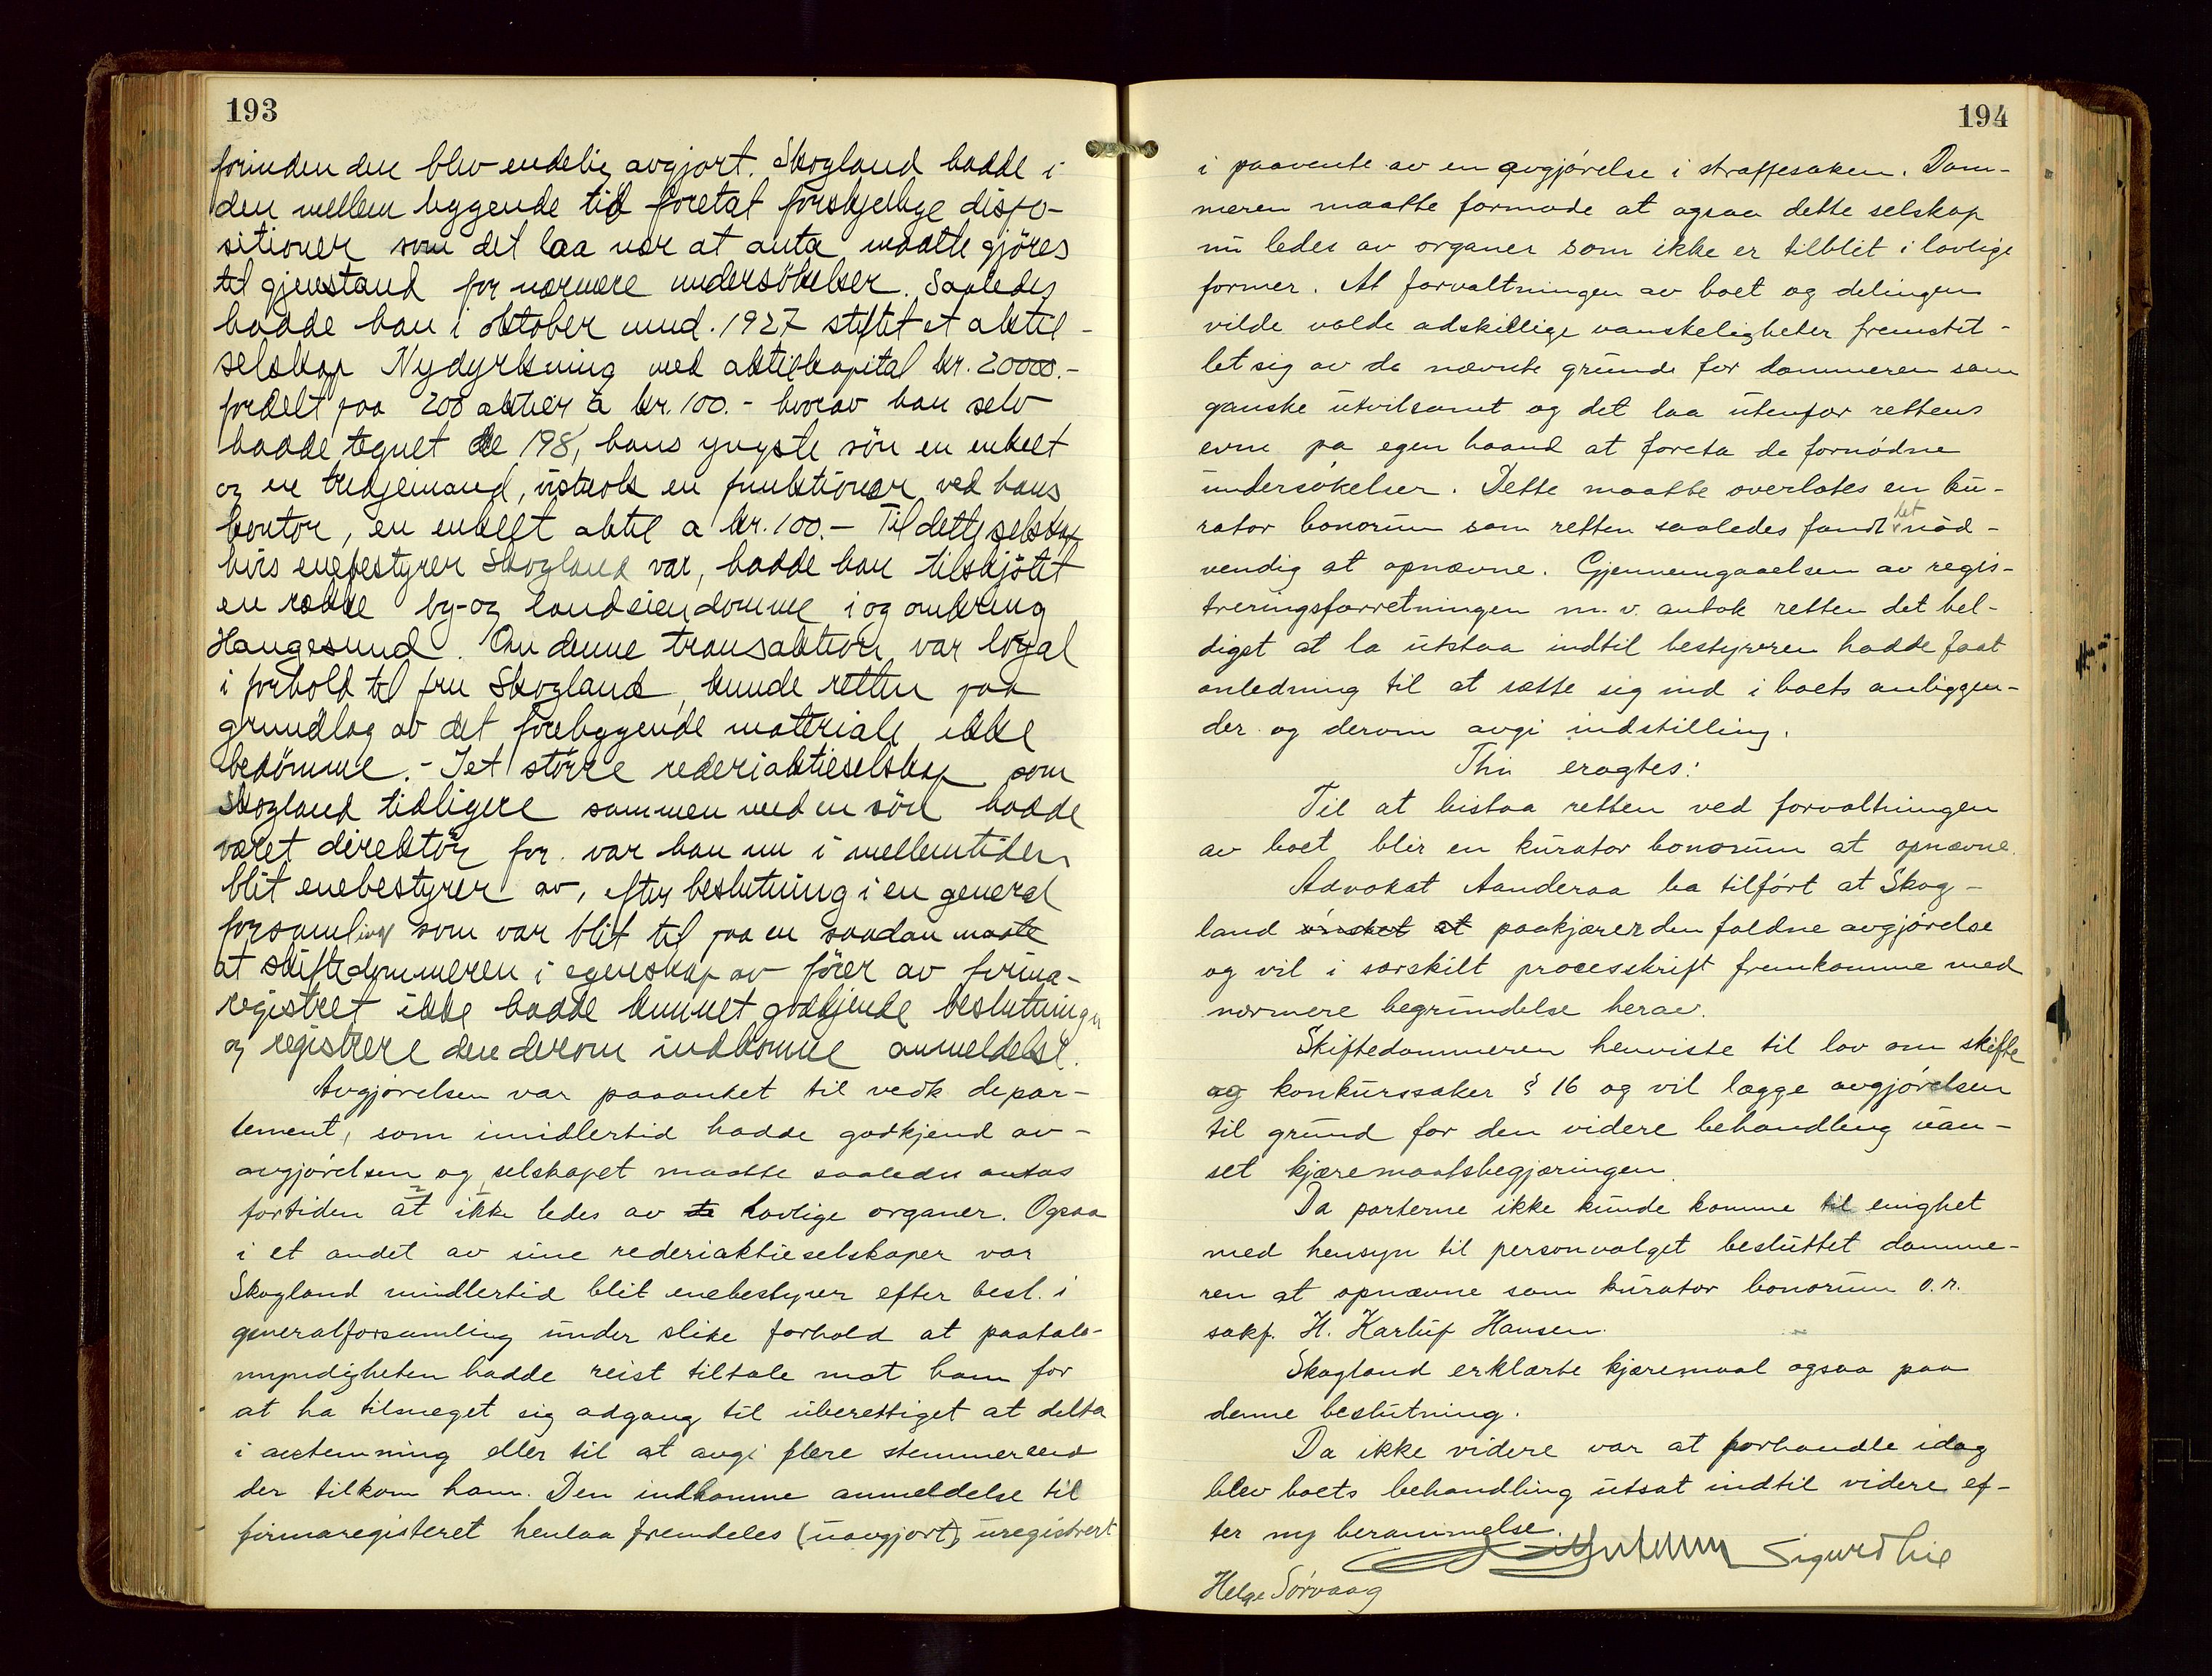 193
forinden den blev endelig avgjort. Skogland hadde i
den mellem liggende tid foretat forskjellige dispo-
sitioner som det laa nær at anta maatte gjöres
til gjenstand for nærmere undersökelser. Saaledes
hadde han i oktober mnd. 1927 stiftet et aktie-
selskap Nydyrkning med aktiekapital kr. 20000.-
fordelt paa 200 aktier à kr. 100.- hvorav han selv
hadde tegnet de 198, hans yngste sön en enkelt
og en tredjemand, vistnok en funktionær ved hans
kontor, en enkelt aktie a kr. 100.- Til dette selskap
hvis enebestyrer Skogland var, hadde han tilskjötet
en række by- og landeiendomme i og omkring
Haugesund. Om denne transaktion var loyal
i forhold til fru Skogland, kunde retten paa
grundlag av det foreliggende materiale ikke
bedömme. - I et större rederiaktieselskap som
Skogland tidligere sammen med en sön hadde
været direktör for. var han nu i mellemtiden
blit enebestyrer av, efter beslutning i en general
forsamling som var blit til paa en saadan maate
at skiftedommeren i egenskap av förer av firma-
registret ikke hadde kunnet godkjende beslutningen
og registrere den derom indkomne anmeldelse.
Avgjörelsen var paaanket til vedk depar-
tement, som imidlertid hadde godkjend av-
avgjörelsen og selskapet maatte saaledes antas
fortiden at ikke ledes av de lovlige organer. Ogsaa
i et andet av sine rederiaktieselskaper var
Skogland imidlertid blit enebestyrer efter besl. i
generalforsamling under slike forhold at paatale-
myndigheten hadde reist tiltale mot ham for
at ha tilsneget sig adgang til uberettiget at delta
i avstemning eller til at avgi flere stemmer end
der tilkom ham. Den indkomne anmeldelse til
firmaregisteret henlaa fremdeles (uavgjort), uregistrert
194
i paavente av en avgjörelse i straffesaken. Dom-
meren maatte formode at ogsaa dette selskap
nu ledes av organer som ikke er tilblit i lovlige
former. At forvaltningen av boet og delingen
vilde volde adskillige vanskeligheter fremstil-
let sig av de nævnte grunde for dommeren som
ganske utvilsomt og det laa utenfor rettens
evne pa egen haand at foreta de fornödne
undersökelser. Dette maatte overlates en ku-
rator bonorum som retten saaledes fandt det nöd-
vendig at opnævne. Gjennemgaaelsen av regis-
treringsforretningen m.v. antok retten det hel-
digst at la utstaa indtil bestyreren hadde faat
anledning til at sætte sig ind i boets anliggen-
der og derom avgi indstilling.
Thi eragtes:
Til at bistaa retten ved forvaltningen
av boet blir en kurator bonorum at opnævne.
Advokat Aanderaa ba tilfört at Skog-
land önsket at paakjærer den faldne avgjörelse
og vil i særskilt processkrift fremkomme med
nærmere begrundelse herav.
Skiftedommeren henviste til lov om skifte
og konkurssaker § 16 og vil lægge avgjörelsen
til grund for den videre behandling uan-
set kjæremaalsbegjæringen.
Da parterne ikke kunde komme til enighet
med hensyn til personvalget besluttet domme-
ren at opnævne som kurator bonorum o.r.
sakf. H. Karlup Hansen.
Skogland erklærte kjæremaal ogsaa paa
denne beslutning.
Da ikke videre var at forhandle idag
blev boets behandling utsat indtil videre ef-
ter ny berammelse.
Sigurd Lie
Helge Sörvaag